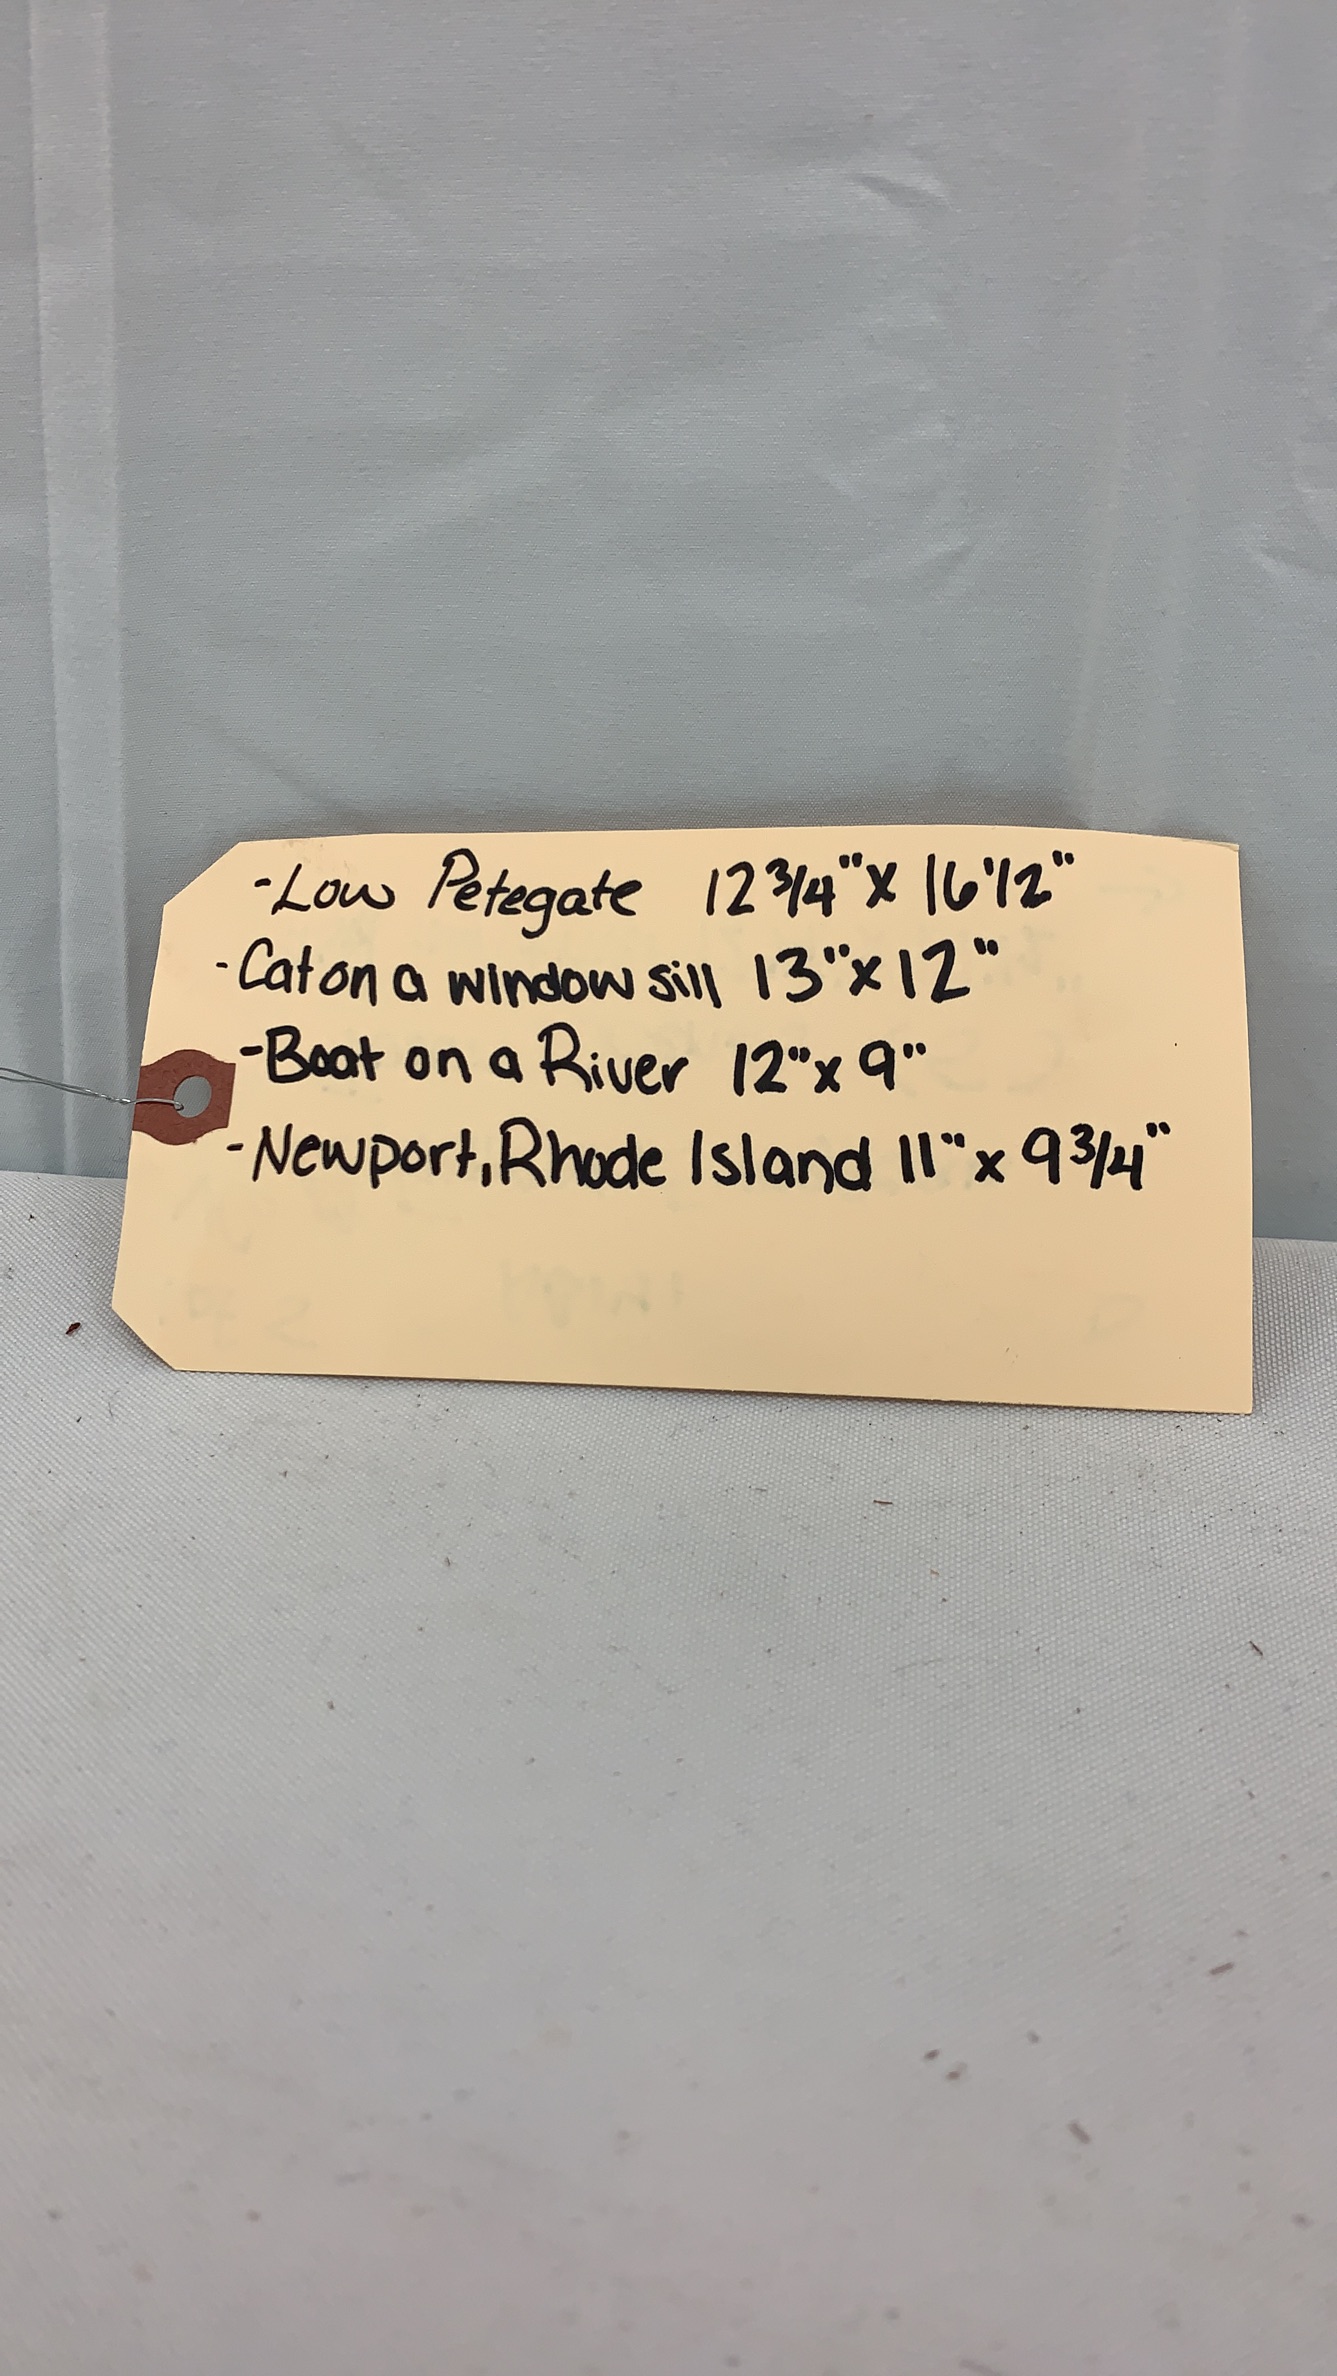 -Low Petegate 12 3/4" X 16 1/2"
-Cat on a window sill 13" x 12"
-Boat on a River 12" x 9"
-Newport, Rhode Island 11" x 9 3/4"